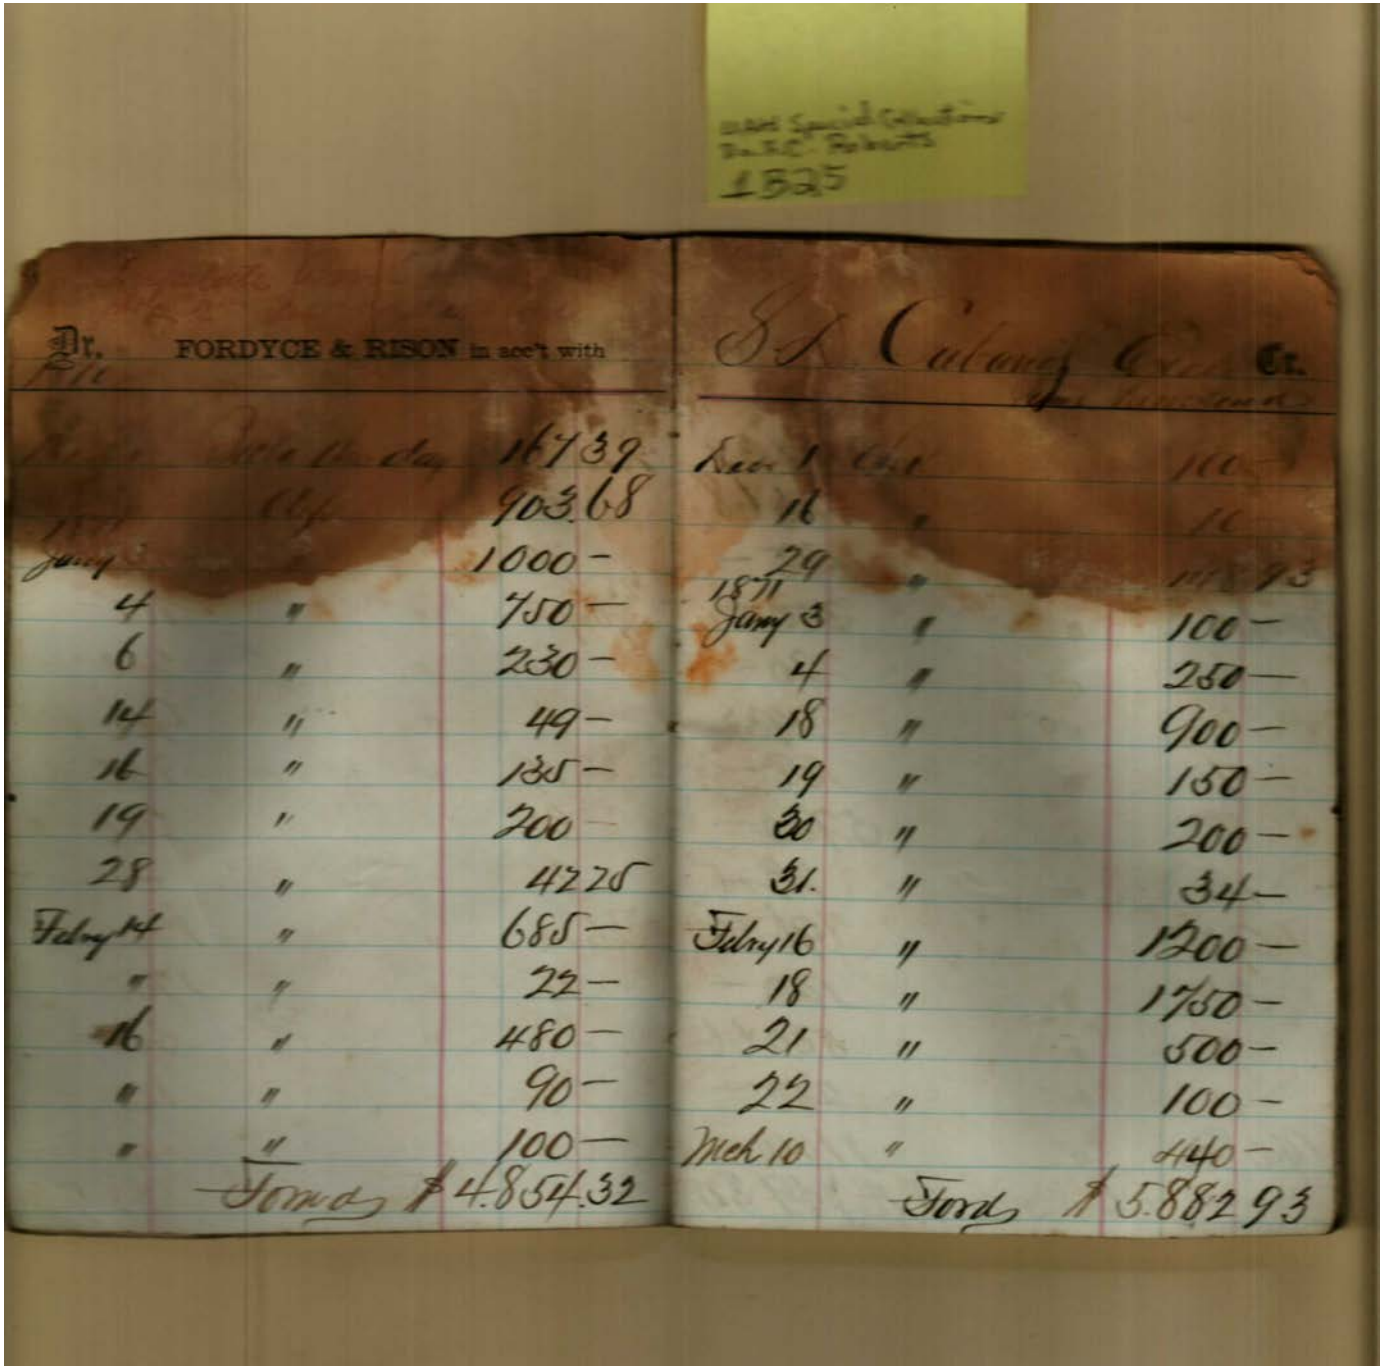 UAH Special Collections
Dr. F.C. Roberts
1B25
Dr. FORDYCE & RISON in acc't with
day 167 39
903.68
Jany 3 1000 -
4 " 750 -
6 " 230 -
14 " 49 -
16 " 135 -
19 " 200 -
28 " 42 25
Febry 14 " 685 -
" " 22 -
16 " 480 -
" " 90 -
" " 100 -
Forwd $ 4.854.32
S. D. Cabaniss Cr.
Dec 1 100 -
16 "
29 " 93
1871
Jany 3 " 100 -
4 " 250 -
18 " 900 -
19 " 150 -
30 " 200 -
31. " 34 -
Febry 16 " 1200 -
18 " 1750 -
21 " 500 -
22 " 100 -
Mch 10 " 440 -
Ford $ 5.882 93